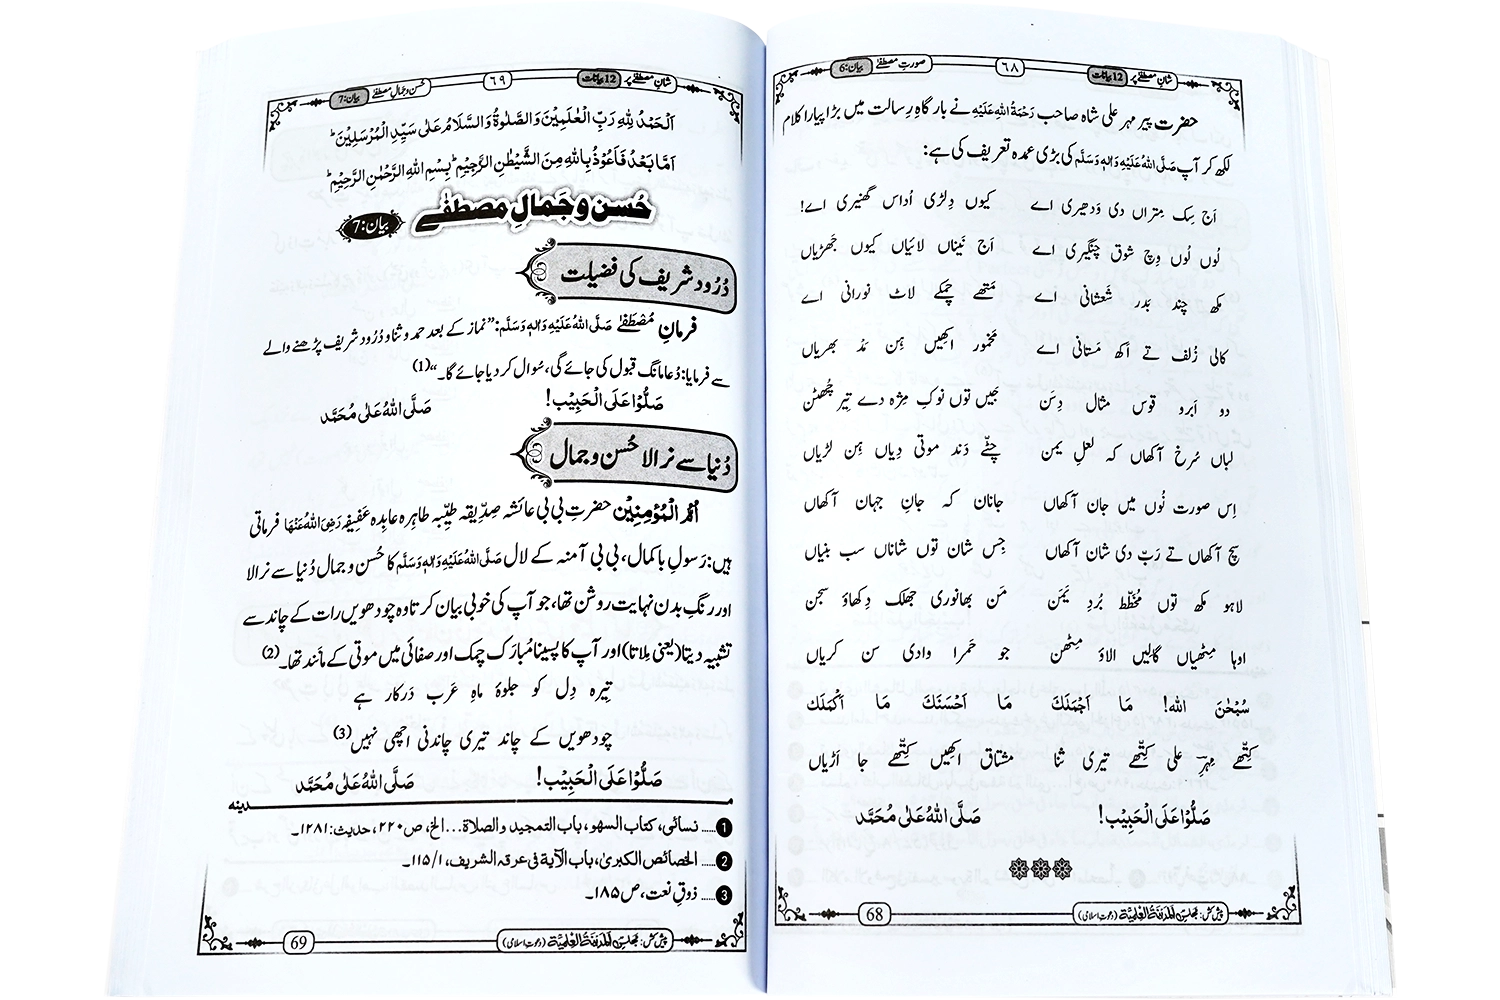 شانِ مصطفےٰ پر 12 بیانات
٦٨
صورتِ مصطفےٰ بیان:6
حضرت پیر مہر علی شاہ صاحب رَحْمَۃُ اللہِ عَلَیْہِ نے بارگاہِ رِسالت میں بڑا پیارا کلام
لکھ کر آپ صَلَّی اللہُ عَلَیْہِ وَاٰلِہٖ وَسَلَّم کی بڑی عمدہ تعریف کی ہے:
اَج سِک مِتراں دی وَدھیری اے کیوں دِلڑی اُداس گھنیری اے!
لُوں لُوں وِچ شوق چنگیری اے اَج نَیناں لائیاں کیوں جَھڑیاں
مکھ چند بدر شَعشانی اے مَتھے چمکے لاٹ نورانی اے
کالی زُلف تے اَکھ مَستانی اے مخمور اکھیں ہِن مَدْ بھریاں
دو اَبرو قوس مثال دِسَن جَیں توں نوکِ مِژہ دے تیر چُھٹن
لباں سُرخ آکھاں کہ لعلِ یمن چِٹّے دَند موتی دِیاں ہِن لڑیاں
اِس صورت نُوں میں جان آکھاں جانان کہ جانِ جہان آکھاں
سچ آکھاں تے رَبّ دی شان آکھاں جِس شان توں شاناں سب بنیاں
لاہو مکھ توں مُخَطّط بُردِ یَمَن مَن بھانوری جھلک دِکھاؤ سجن
اوہا مِٹھیاں گالیں الاؤ مِٹھن جو حَمرا وادی سن کریاں
سُبْحٰنَ اللہ! مَا اَجْمَلَكَ مَا اَحْسَنَكَ مَا اَکْمَلَكَ
کِتّھے مِہرِ علی کِتّھے تیری ثنا مشتاق اکھیں کِتّھے جا اَڑیاں
صَلُّوْا عَلَی الْحَبِیْب! صَلَّی اللہُ عَلٰی مُحَمَّد
پیش کش: مجلس اَلْمَدِیْنَۃُ الْعِلْمِیَّۃ (دعوتِ اسلامی)
68
شانِ مصطفےٰ پر 12 بیانات
٦٩
حُسن و جمالِ مصطفےٰ بیان:7
اَلْحَمْدُ لِلّٰہِ رَبِّ الْعٰلَمِیْنَ وَالصَّلٰوۃُ وَالسَّلَامُ عَلٰی سَیِّدِ الْمُرْسَلِیْنَ ؕ
اَمَّا بَعْدُ فَاَعُوْذُ بِاللّٰہِ مِنَ الشَّیْطٰنِ الرَّجِیْمِ ؕ بِسْمِ اللّٰہِ الرَّحْمٰنِ الرَّحِیْمِ ؕ
حُسن و جَمالِ مصطفےٰ بیان:7
دُرُود شریف کی فضیلت
فرمانِ مُصْطَفٰے صَلَّی اللہُ عَلَیْہِ وَاٰلِہٖ وَسَلَّم: ”نماز کے بعد حمد و ثنا و دُرُود شریف پڑھنے والے
سے فرمایا: دُعا مانگ قبول کی جائے گی، سُوال کر دِیا جائے گا۔“ (1)
صَلُّوْا عَلَی الْحَبِیْب! صَلَّی اللہُ عَلٰی مُحَمَّد
دُنیا سے نرالا حُسن و جمال
اُمُّ الْمُؤْمِنِیْن حضرتِ بی بی عائشہ صِدِّیقہ طیِّبہ طاہِرہ عابِدہ عَفیفہ رَضِیَ اللہُ عَنْہَا فرماتی
ہیں: رَسولِ باکمال، بی بی آمنہ کے لال صَلَّی اللہُ عَلَیْہِ وَاٰلِہٖ وَسَلَّم کا حُسن و جمال دُنیا سے نرالا
اور رنگِ بدن نہایت روشن تھا، جو آپ کی خوبی بیان کرتا وہ چودھویں رات کے چاند سے
تشبیہ دیتا (یعنی مِلاتا) اور آپ کا پسینا مُبارَک چمک اور صفائی میں موتی کے مانند تھا۔ (2)
تِیرہ دِل کو جلوۂ ماہِ عَرب دَرکار ہے
چودھویں کے چاند تیری چاندنی اچھی نہیں (3)
صَلُّوْا عَلَی الْحَبِیْب! صَلَّی اللہُ عَلٰی مُحَمَّد
مدینہ
1 ..... نسائی، کتاب السھو، باب التمجید والصلاة ... الخ، ص ۲۲۰، حدیث: ۱۲۸۱۔
2 ..... الخصائص الکبریٰ، باب الآیة فی عرقه الشریف، ۱/۱۱۵۔
3 ..... ذوقِ نعت، ص ۱۸۵۔
پیش کش: مجلس اَلْمَدِیْنَۃُ الْعِلْمِیَّۃ (دعوتِ اسلامی)
69